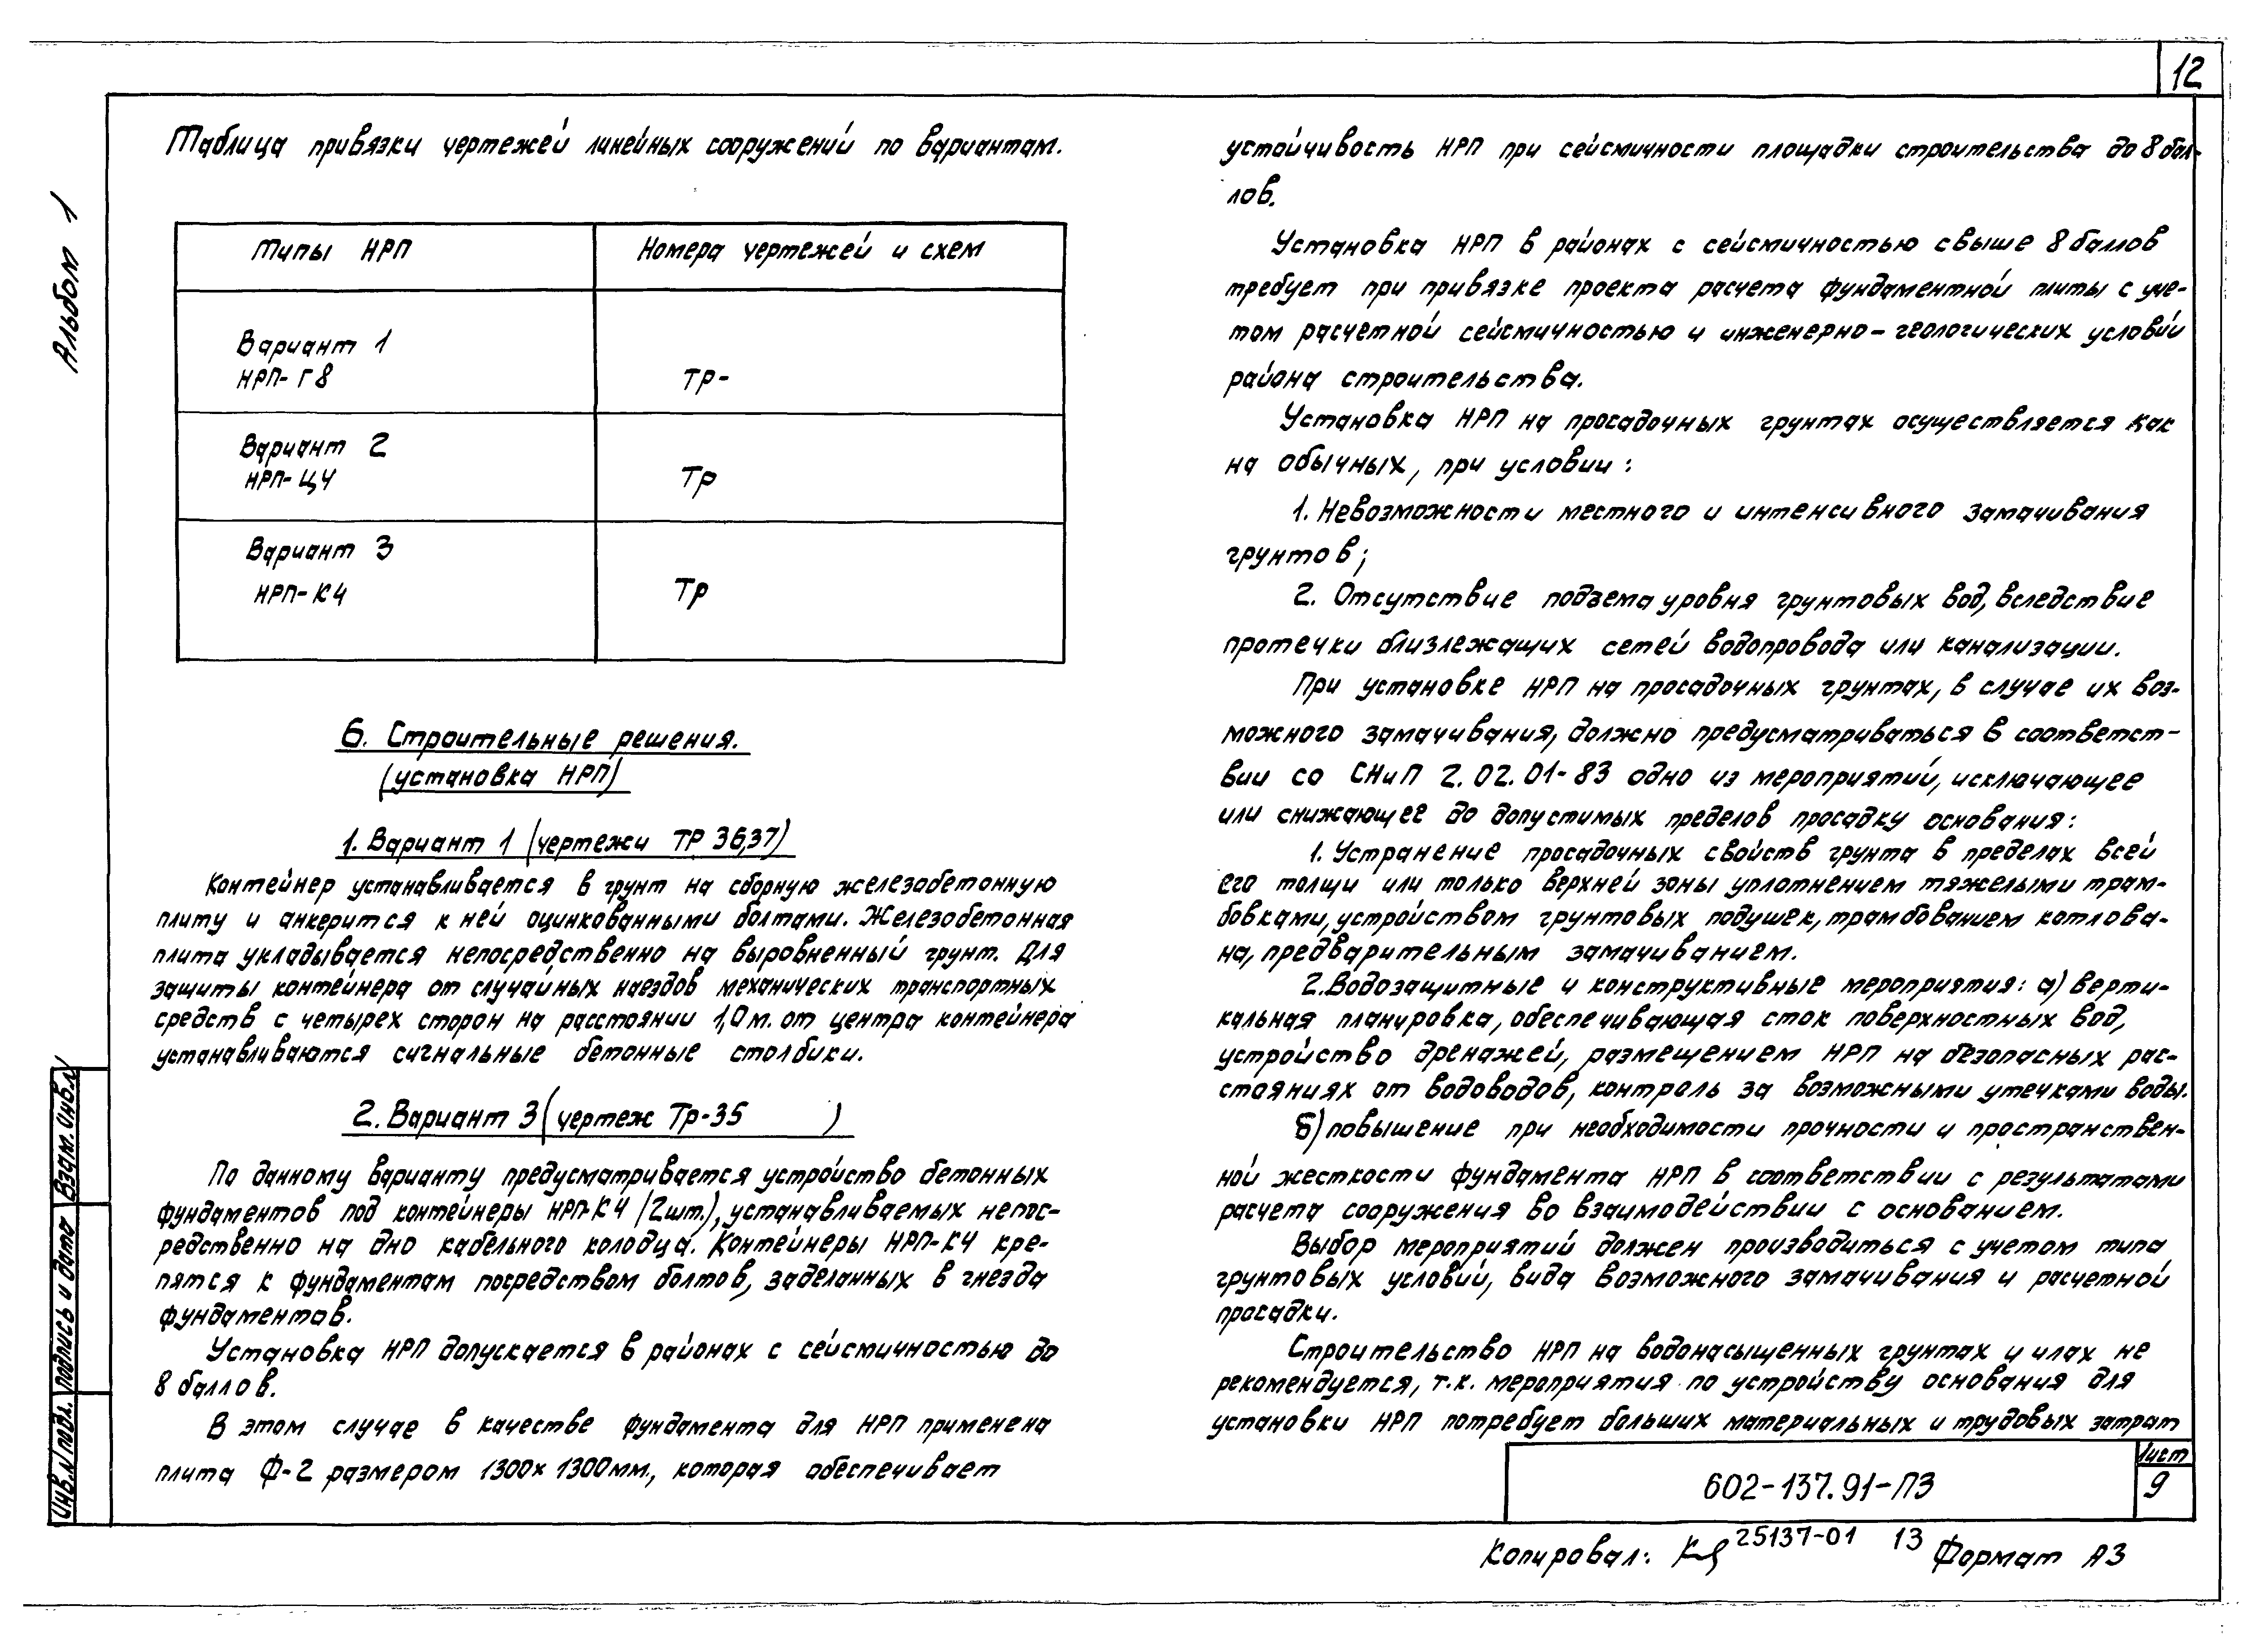 12
Альбом 1
Таблица привязки чертежей линейных сооружений по вариантам.
Типы НРП
Номера чертежей и схем
Вариант 1
НРП-Г8
ТР-
Вариант 2
НРП-Ц4
Тр
Вариант 3
НРП-К4
Тр
6. Строительные решения.
(установка НРП)
1. Вариант 1 (чертежи ТР 36,37)
Контейнер устанавливается в грунт на сборную железобетонную
плиту и анкерится к ней оцинкованными болтами. Железобетонная
плита укладывается непосредственно на выровненный грунт. Для
защиты контейнера от случайных наездов механических транспортных
средств с четырех сторон на расстоянии 1,0 м. от центра контейнера
устанавливаются сигнальные бетонные столбики.
2. Вариант 3 (чертеж Тр-35 )
По данному варианту предусматривается устройство бетонных
фундаментов под контейнеры НРП-К4 (2шт.), устанавливаемых непос-
редственно на дно кабельного колодца. Контейнеры НРП-К4 кре-
пятся к фундаментам посредством болтов, заделанных в гнезда
фундаментов.
Установка НРП допускается в районах с сейсмичностью до
8 баллов.
В этом случае в качестве фундамента для НРП применена
плита Ф-2 размером 1300х1300мм, которая обеспечивает
устойчивость НРП при сейсмичности площадки строительства до 8 бал-
лов.
Установка НРП в районах с сейсмичностью свыше 8 баллов
требует при привязке проекта расчета фундаментной плиты с уче-
том расчетной сейсмичностью и инженерно-геологических условий
района строительства.
Установка НРП на просадочных грунтах осуществляется как
на обычных, при условии:
1. Невозможности местного и интенсивного замачивания
грунтов;
2. Отсутствие подзема уровня грунтовых вод, вследствие
протечки близлежащих сетей водопровода или канализации.
При установке НРП на просадочных грунтах, в случае их воз-
можного замачивания, должно предусматриваться в соответст-
вии со СНиП 2.02.01-83 одно из мероприятий, исключающее
или снижающее до допустимых пределов просадку основания:
1. Устранение просадочных свойств грунта в пределах всей
его толщи или только верхней зоны уплотнением тяжелыми трам-
бовками, устройством грунтовых подушек, трамбованием котлова-
на, предварительным замачиванием.
2. Водозащитные и конструктивные мероприятия: а) верти-
кальная планировка, обеспечивающая сток поверхностных вод,
устройство дренажей, размещением НРП на безопасных рас-
стояниях от водоводов, контроль за возможными утечками воды.
б) повышение при необходимости прочности и пространствен-
ной жесткости фундамента НРП в соответствии с результатами
расчета сооружения во взаимодействии с основанием.
Выбор мероприятий должен производиться с учетом типа
грунтовых условий, вида возможного замачивания и расчетной
просадки.
Строительство НРП на водонасыщенных грунтах и илах не
рекомендуется, т.к. мероприятия по устройству основания для
установки НРП потребует больших материальных и трудовых затрат
Инв.№ подл.
подпись и дата
Взам. инв.№
602-137.91-ПЗ
Лист
9
Копировал:
25137-01 13
Формат А3